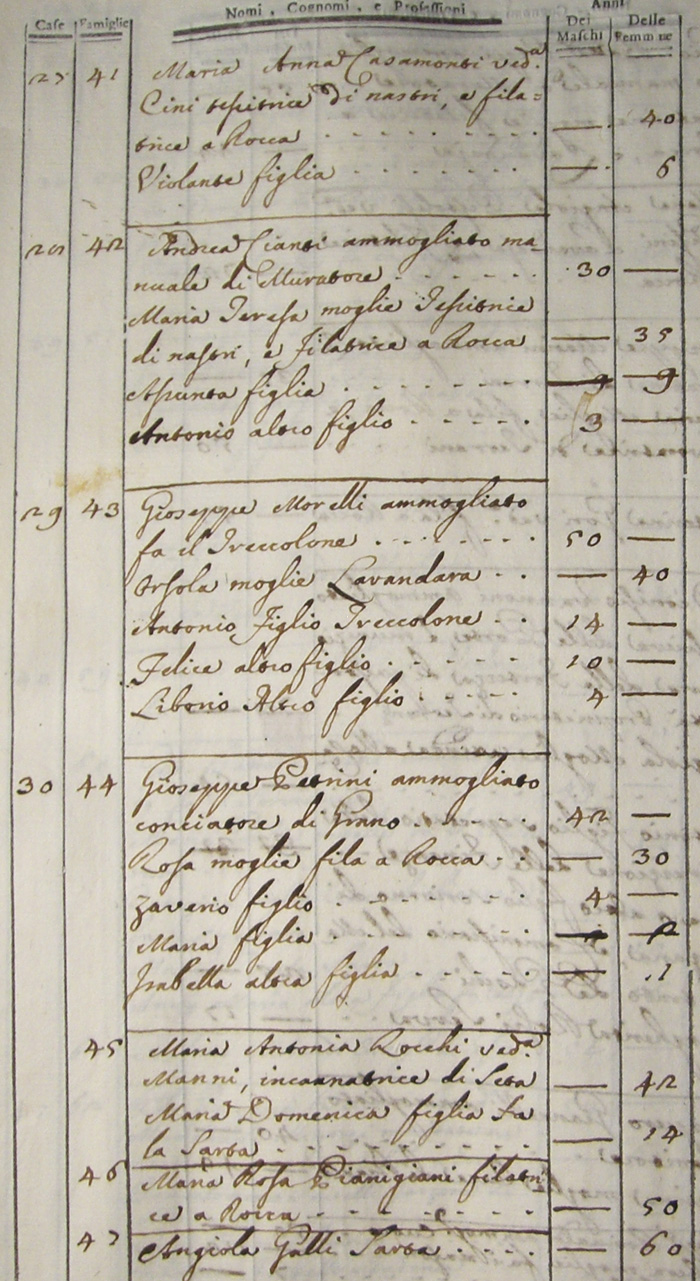 Case Famiglie Nomi, Cognomi, e Professioni Anni Dei Maschi Delle Femmine
27 41 Maria Anna Casamonti ved.a
Cini tessitrice di nastri, e fila=
trice a Rocca - - - - - - — 40
Violante figlia - - - - - — 6
28 42 Andrea Cianti ammogliato ma-
nuale di Muratore - - - - 30 —
Maria Teresa moglie Tessitrice
di nastri, e Filatrice a Rocca — 35
Assunta figlia - - - - - - — 9
Antonio altro figlio - - - - 3 —
29 43 Gioseppe Morelli ammogliato
fa il Treccolone - - - - - 50 —
Orsola moglie Lavandara - - — 40
Antonio Figlio Treccolone - - 14 —
Felice altro figlio - - - - 10 —
Liborio Altro figlio - - - - 4 —
30 44 Gioseppe Petrini ammogliato
conciatore di Grano - - - - 42 —
Rosa moglie fila a Rocca - - — 30
Zaverio figlio - - - - - 4 —
Maria figlia - - - - - — 2
Isabella altra figlia - - - - — .1
45 Maria Antonia Rocchi ved.a
Manni, incannatrice di Seta — 42
Maria Domenica figlia fa
la Sarta - - - - - - - — 14
46 Maria Rosa Pianigiani filatri
ce a Rocca - - - - - - — 50
47 Angiola Galli Sarta - - - - — 60